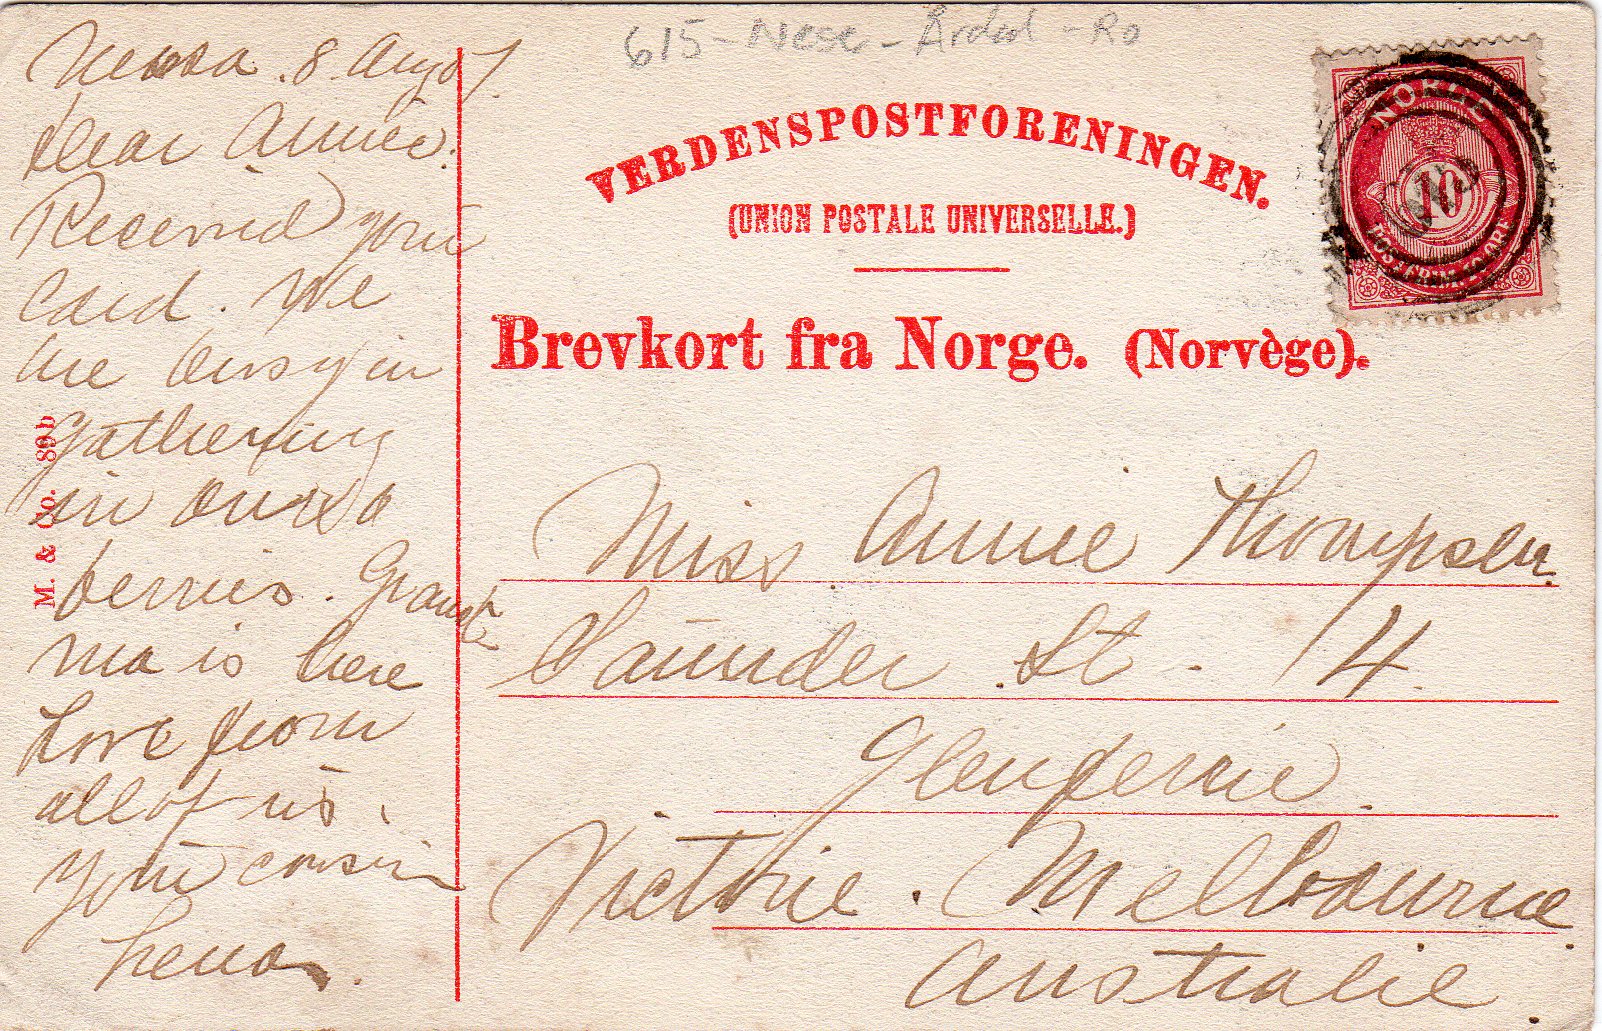 615 - Nese - Årdal - Ro
8. Aug 07.
Dear Annie.
Received your
Card. We
are busy in
gathering
in our
berries. Grand
ma is here
Love from
all of us.
your cousin
Lena.
M. & Co. 89 b
VERDENSPOSTFORENINGEN.
(UNION POSTALE UNIVERSELLE.)
Brevkort fra Norge. (Norvège).
NORGE
10
POSTFRIM.
Miss Annie Thompsen
Saunder St. 14.
Glenferrie.
Victorie. Melbourne
Australie